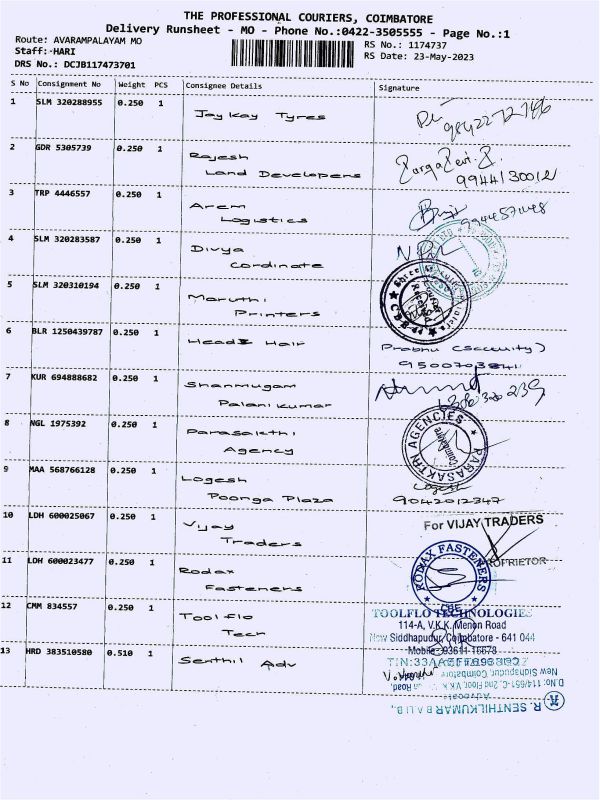 THE PROFESSIONAL COURIERS, COIMBATORE
Delivery Runsheet - MO - Phone No.:0422-3505555 - Page No.:1
Route: AVARAMPALAYAM MO
RS No.: 1174737
Staff:-HARI
RS Date: 23-May-2023
DRS No.: DCJB117473701
S No Consignment No Weight PCS Consignee Details Signature
1 SLM 320288955 0.250 1 Jaykay Tyres
2 GDR 5305739 0.250 1 Rajesh
Land Developers
9944130012
3 TRP 4446557 0.250 1 Arem
Logistics
4 SLM 320283587 0.250 1 Divya
Cordinate
5 SLM 320310194 0.250 1 Maruthi
Printers
6 BLR 1250439787 0.250 1 Heads Hair
Prabhu (Security)
9500703841
7 KUR 694888682 0.250 1 Shanmugam
Palani kumar
8 NGL 1975392 0.250 1 Parasakthi
Agency
PARASAKTHI AGENCIES
Coimbatore
9 MAA 568766128 0.250 1 Logesh
Poonga Plaza
Logesh
9042012347
10 LDH 600025067 0.250 1 Vijay
Traders
For VIJAY TRADERS
PROPRIETOR
11 LDH 600023477 0.250 1 Rodax
Fasteners
RODAX FASTENERS
CBE
12 CMM 834557 0.250 1 Toolflo
Tech
TOOLFLO TECHNOLOGIES
114-A, V.K.K. Menon Road
New Siddhapudur, Coimbatore - 641 044
Mobile: 93611-16678
13 HRD 383510580 0.510 1 Senthil Adv
New Sidhapudur, Coimbatore
D.No: 114/651-C, 2nd Floor, V.K.K. Road
Advocate
R. SENTHILKUMAR B.A.L.B.,